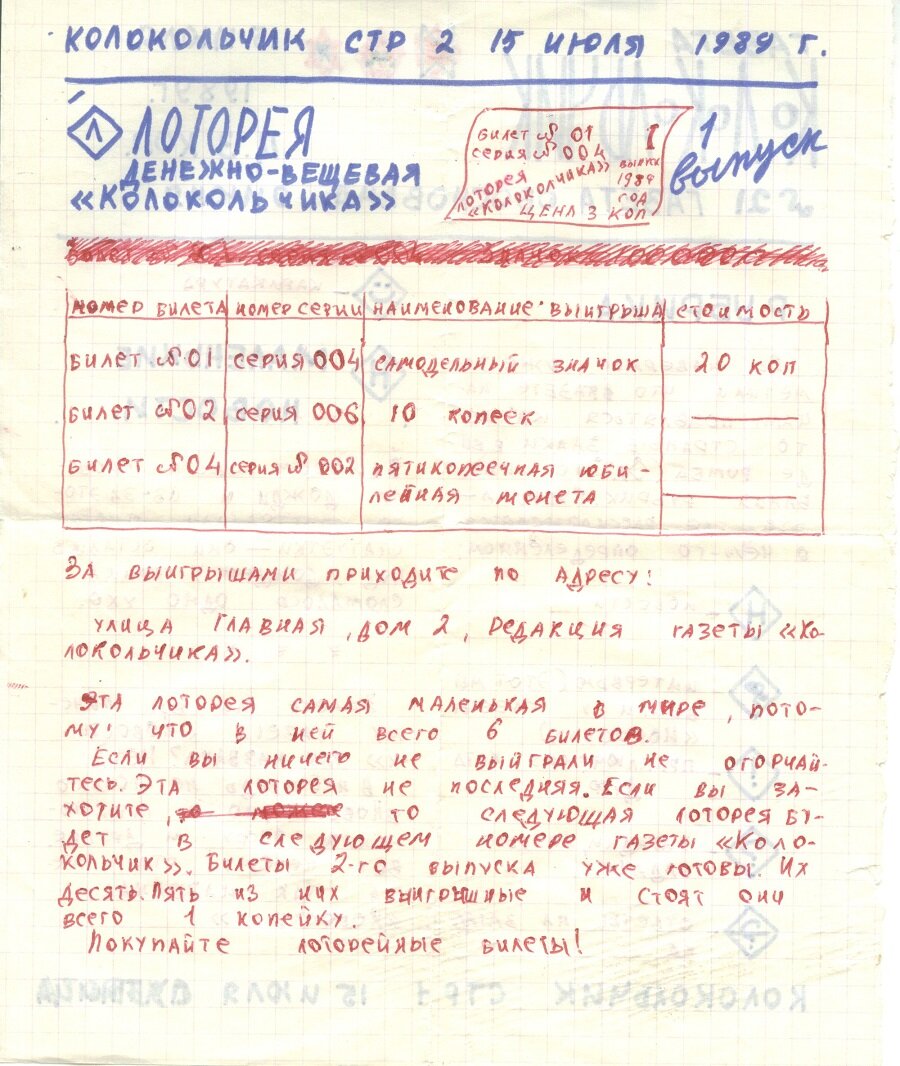 КОЛОКОЛЬЧИК СТР 2 15 ИЮЛЯ 1989 г.
Л ЛОТОРЕЯ
ДЕНЕЖНО-ВЕЩЕВАЯ
«КОЛОКОЛЬЧИКА»
БИЛЕТ № 01 I
СЕРИЯ № 004
ЛОТОРЕЯ
«КОЛОКОЛЧИКА»
ВЫПУСК
1989
ГОД
ЦЕНА 3 КОП
1
ВЫПУСК
НОМЕР БИЛЕТА НОМЕР СЕРИИ НАИМЕНОВАНИЕ ВЫИГРЫША СТОИМОСТЬ
БИЛЕТ №01 СЕРИЯ 004 САМОДЕЛЬНЫЙ ЗНАЧОК 20 КОП
БИЛЕТ №02 СЕРИЯ 006 10 КОПЕЕК
БИЛЕТ №04 СЕРИЯ № 002 ПЯТИКОПЕЕЧНАЯ ЮБИ-
ЛЕЙНАЯ МОНЕТА
ЗА ВЫИГРЫШАМИ ПРИХОДИТЕ ПО АДРЕСУ:
УЛИЦА ГЛАВНАЯ, ДОМ 2, РЕДАКЦИЯ ГАЗЕТЫ «КО-
ЛОКОЛЬЧИКА».
ЭТА ЛОТОРЕЯ САМАЯ МАЛЕНЬКАЯ В МИРЕ, ПОТО-
МУ ЧТО В НЕЙ ВСЕГО 6 БИЛЕТОВ.
ЕСЛИ ВЫ НИЧЕГО НЕ ВЫЙГРАЛИ НЕ ОГОРЧАЙ-
ТЕСЬ. ЭТА ЛОТОРЕЯ НЕ ПОСЛЕДНЯЯ. ЕСЛИ ВЫ ЗА-
ХОТИТЕ, ТО СЛЕДУЮЩАЯ ЛОТОРЕЯ БУ-
ДЕТ В СЛЕДУЮЩЕМ НОМЕРЕ ГАЗЕТЫ «КОЛО-
КОЛЬЧИК». БИЛЕТЫ 2-ГО ВЫПУСКА УЖЕ ГОТОВЫ. ИХ
ДЕСЯТЬ. ПЯТЬ ИЗ НИХ ВЫИГРЫШНЫЕ И СТОЯТ ОНИ
ВСЕГО 1 КОПЕЙКУ.
ПОКУПАЙТЕ ЛОТОРЕЙНЫЕ БИЛЕТЫ!